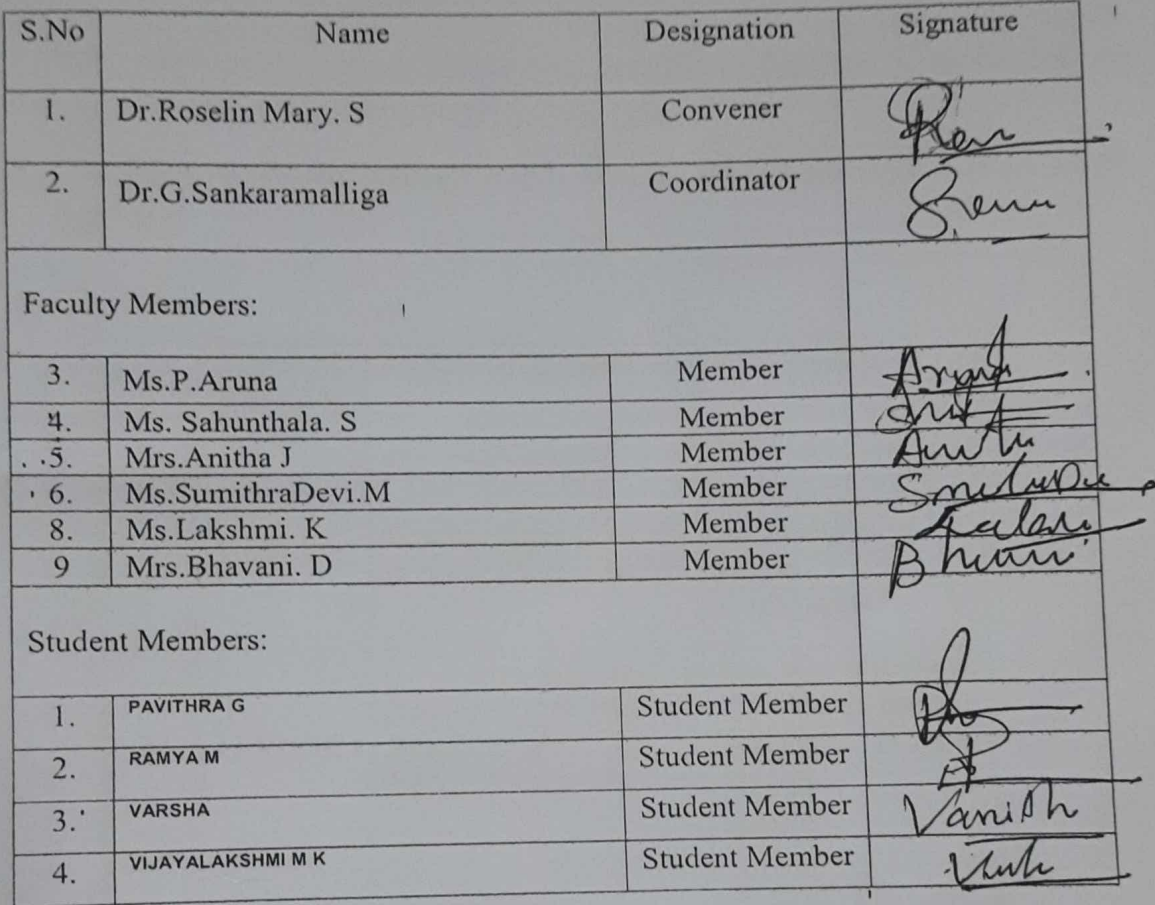 S.No Name Designation Signature
1. Dr.Roselin Mary. S Convener
2. Dr.G.Sankaramalliga Coordinator
Faculty Members:
3. Ms.P.Aruna Member
4. Ms. Sahunthala. S Member
5. Mrs.Anitha J Member
6. Ms.SumithraDevi.M Member
8. Ms.Lakshmi. K Member
9 Mrs.Bhavani. D Member
Student Members:
1. PAVITHRA G Student Member
2. RAMYA M Student Member
3. VARSHA Student Member
4. VIJAYALAKSHMI M K Student Member